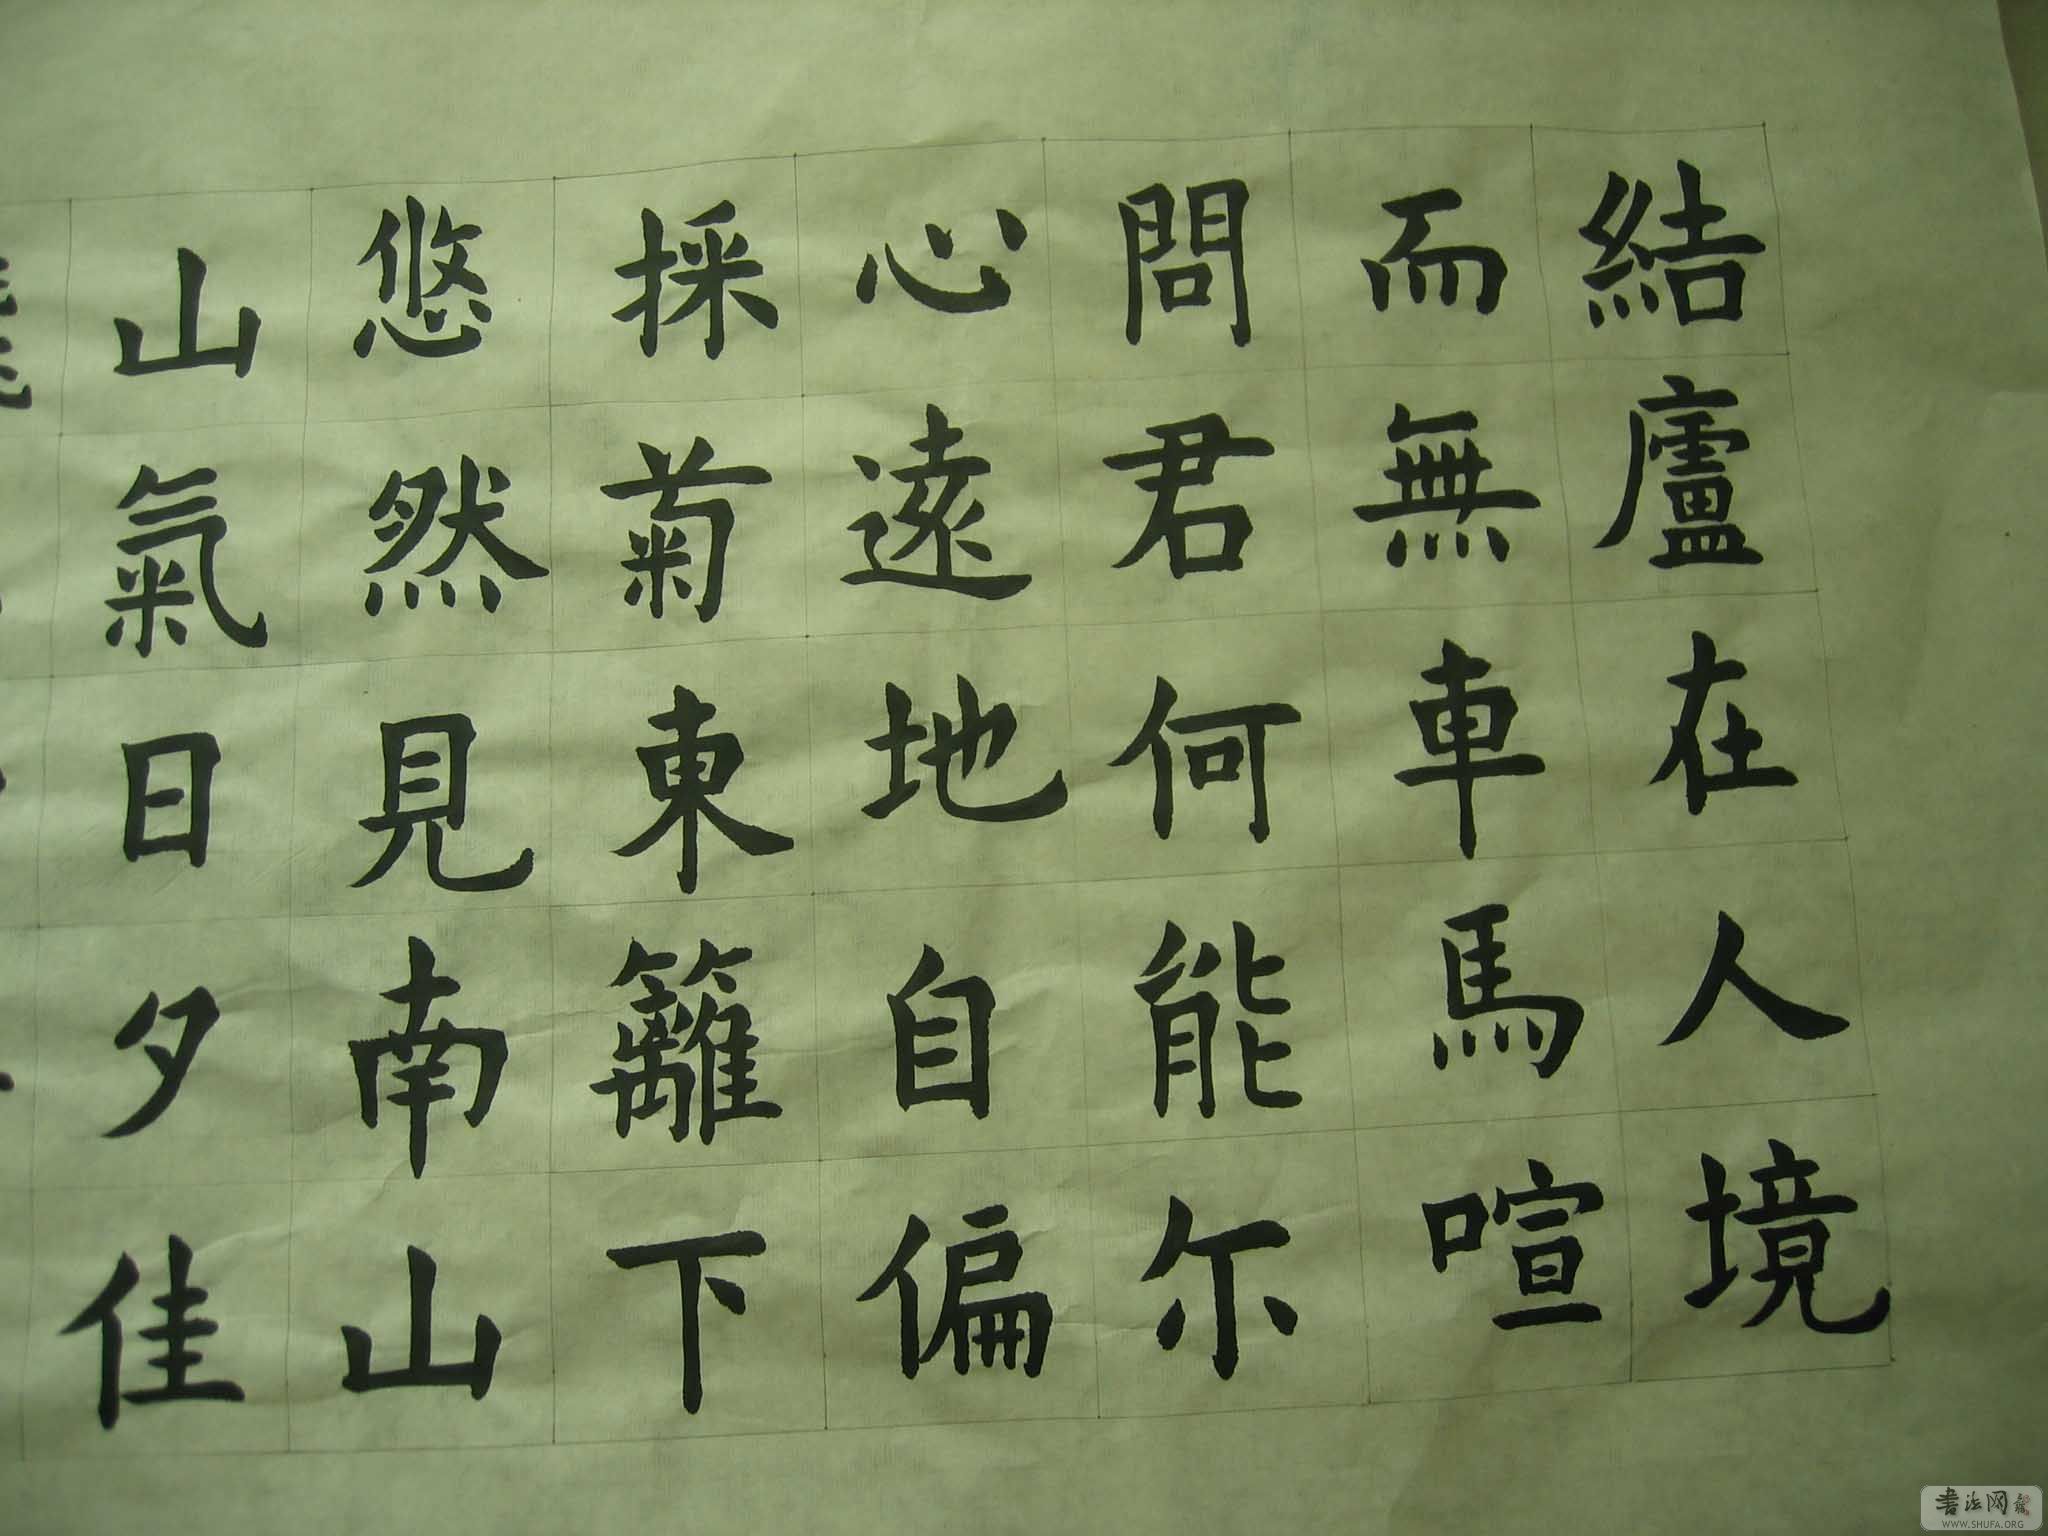 結廬在人境
而無車馬喧
問君何能尔
心遠地自偏
採菊東籬下
悠然見南山
山氣日夕佳
书法网
WWW.SHUFA.ORG